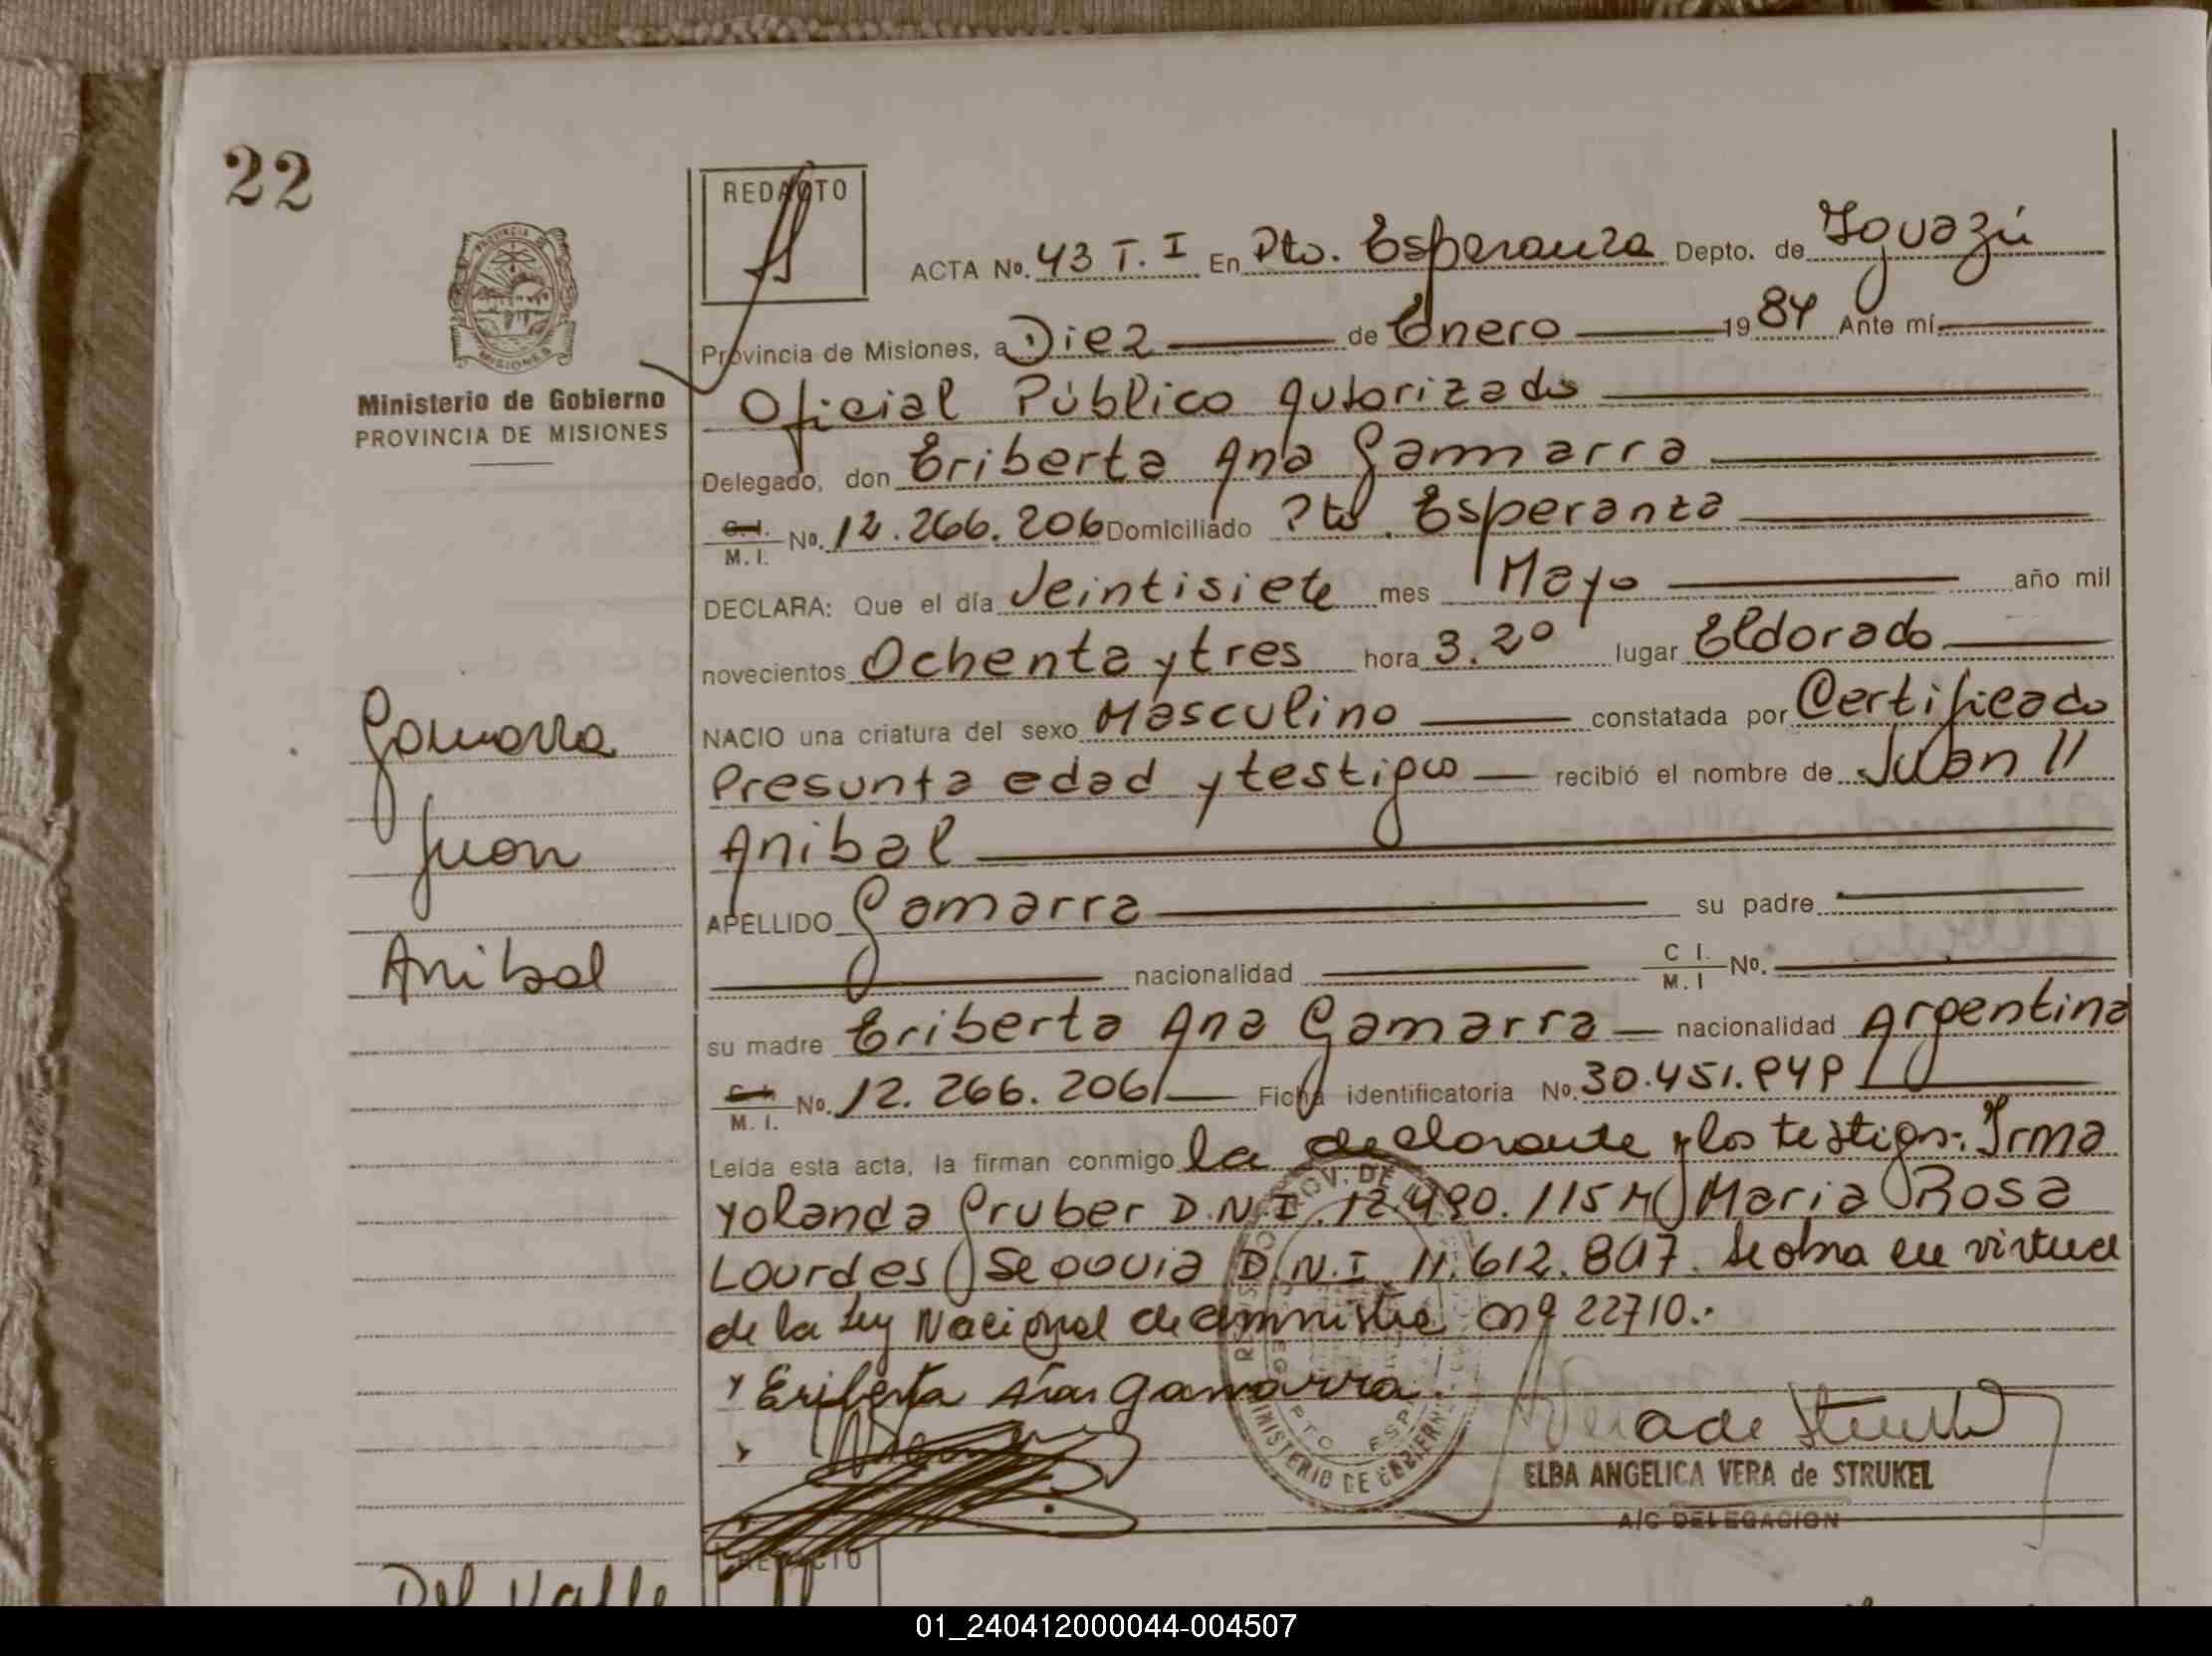 22
REDACTO
ACTA No. 43 T. I En Pto. Esperanza Depto. de Iguazú
Provincia de Misiones, a Diez de Enero 1984 Ante mí
Ministerio de Gobierno
PROVINCIA DE MISIONES
Oficial Público autorizado
Delegado, don Eriberta Ana Gamarra
C.I. M.I. No. 12.266.206 Domiciliado Pto. Esperanza
DECLARA: Que el día Veintisiete mes Mayo año mil
novecientos Ochenta y tres hora 3.20 lugar Eldorado
NACIO una criatura del sexo Masculino constatada por Certificado
Presunta edad y testigos recibió el nombre de Juan //
Anibal
APELLIDO Gamarra su padre
nacionalidad C I. M. I No.
su madre Eriberta Ana Gamarra nacionalidad Argentina
M. I. No. 12.266.206 Ficha identificatoria No. 30.451.949
Leída esta acta, la firman conmigo la declarante y los testigos: Irma
Yolanda Gruber D.N.I. 12.490.115 y Maria Rosa
Lourdes Segovia D.N.I. 11.612.847. Se obra en virtud
de la Ley Nacional de amnistia nº 22710.-
Gamarra
Juan
Anibal
Eriberta Ana Gamarra
MINISTERIO DE GOBIERNO
ELBA ANGELICA VERA de STRUKEL
A/C DELEGACION
REDACTO
Del Valle
01_240412000044-004507